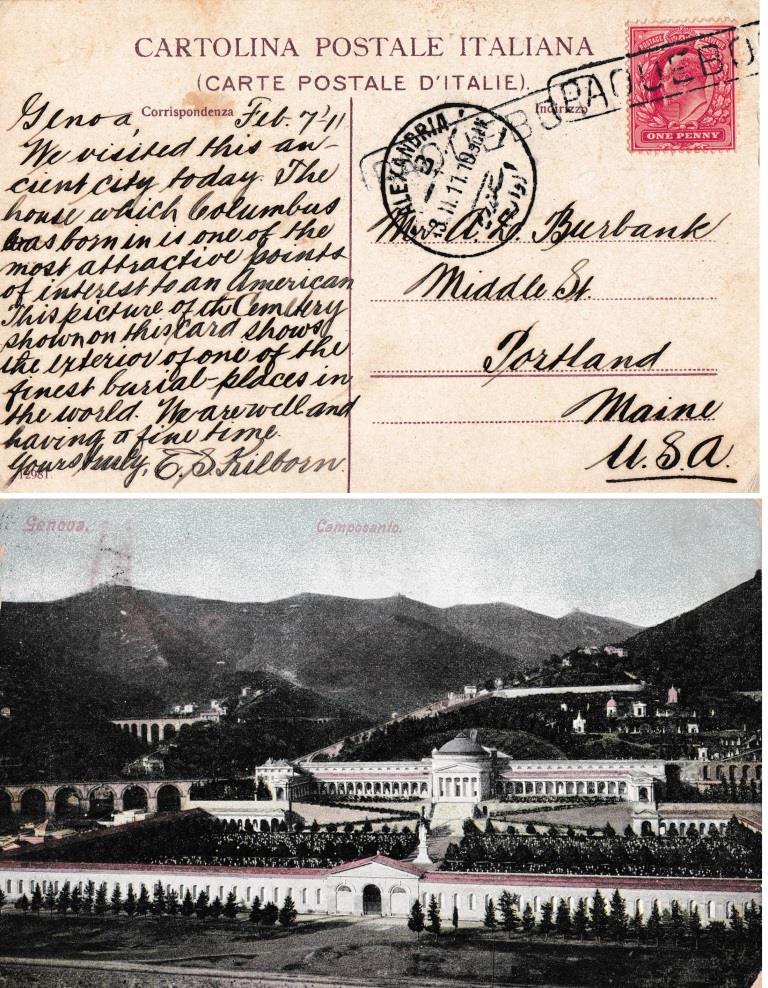 CARTOLINA POSTALE ITALIANA
(CARTE POSTALE D'ITALIE).
Corrispondenza
Indirizzo
Genoa, Feb. 7 '11
We visited this an-
cient city today. The
house which Columbus
was born in is one of the
most attractive points
of interest to an American
This picture of th Cemetery
shown on this card shows
the exterior of one of the
finest burial-places in
the world. We are well and
having a fine time.
Yours truly, E. S. Kilborn.
12981
PAQUEBO
ONE PENNY
ALEXANDRIA
11.11.10
Mrs. A. L. Burbank
Middle St.
Portland
Maine
U.S.A.
Genova.
Camposanto.